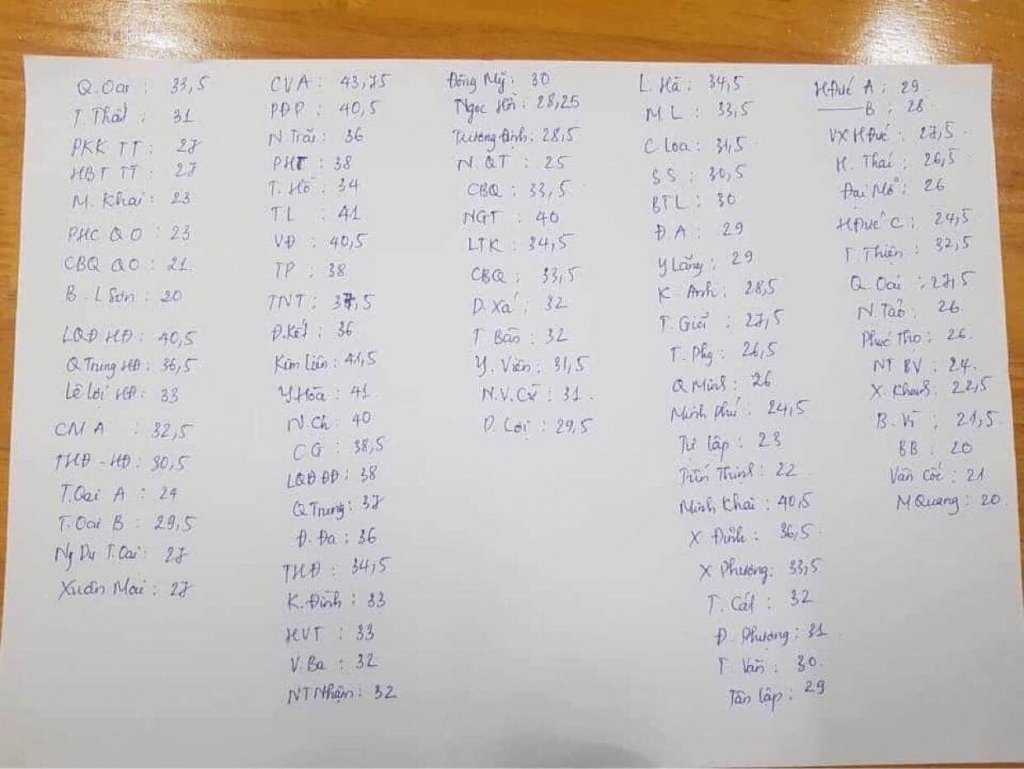 Q. Oai : 33,5
T Thất : 31
PKK TT : 27
HBT TT : 27
M. Khai : 23
PHC QO : 23
CBQ QO : 21
B. L Sơn : 20
LQĐ HĐ : 40,5
Q Trung HĐ : 36,5
Lê Lợi HĐ : 33
CMA : 32,5
THĐ - HĐ : 30,5
T. Oai A : 24
T. Oai B : 29,5
Ng Du T. Oai : 27
Xuân Mai : 27
CVA : 43,75
PĐP : 40,5
N. Trãi : 36
PHT : 38
T. Hồ : 34
TL : 41
VĐ : 40,5
TP : 38
TNT : 37,5
Đ. Kết : 36
Kim Liên : 41,5
Y Hòa : 41
N. Ch : 40
CG : 38,5
LQĐ ĐĐ : 38
Q Trung : 37
Đ. Đa : 36
THĐ : 34,5
K. Đình : 33
HVT : 33
V. Ba : 32
NT Nhận : 32
Đông Mỹ : 30
Ngọc Hồi : 28,25
Trương Định : 28,5
N. QT : 25
CBQ : 33,5
NGT : 40
LTK : 34,5
CBQ : 33,5
D. Xá : 32
T Bàn : 32
Y. Viên : 31,5
N.V. Cừ : 31
D. Lợi : 29,5
L. Hà : 34,5
M L : 33,5
C Loa : 31,5
SS : 30,5
BTL : 30
Đ A : 29
Y Lãng : 29
K. Anh : 28,5
T. Giể : 27,5
T. Phg : 26,5
Q Minh : 26
Minh Phú : 24,5
Tự lập : 23
Trần Thịnh : 22
Minh Khai : 40,5
X Đỉnh : 36,5
X Phương : 33,5
T. Cát : 32
Đ. Phượng : 31
T. Văn : 30
Tân lập : 29
H Đức A : 29
B : 28
VX H Đức : 27,5
H. Thai : 26,5
Đại Mỗ : 26
H Đức C : 24,5
T. Thiên : 32,5
Q. Oai : 27,5
N. Tảo : 26
Phúc Thọ : 26
NT BV : 24
X. Khanh : 22,5
B. Vì : 21,5
BB : 20
Vân Cốc : 21
M Quang : 20